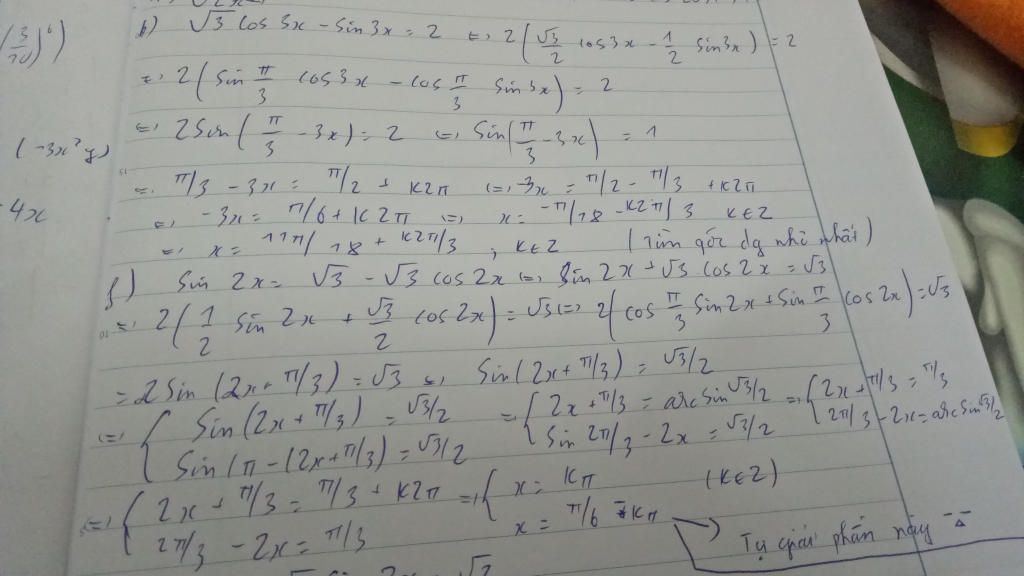 b) √3 cos3x - sin3x = 2 ⇔ 2(√3/2 cos3x - 1/2 sin3x) = 2
⇔ 2(sin π/3 cos3x - cos π/3 sin3x) = 2
⇔ 2sin(π/3 - 3x) = 2 ⇔ sin(π/3 - 3x) = 1
⇔ π/3 - 3x = π/2 + k2π ⇔ -3x = π/2 - π/3 + k2π
⇔ -3x = π/6 + k2π ⇔ x = -π/18 - k2π/3 k∈Z
⇔ x = 11π/18 + k2π/3 , k∈Z (Tìm góc dg nhỏ nhất)
f) sin 2x = √3 - √3 cos2x ⇔ sin2x + √3 cos2x = √3
⇔ 2(1/2 sin2x + √3/2 cos2x) = √3 ⇔ 2(cos π/3 sin2x + sin π/3 cos2x) = √3
= 2sin(2x + π/3) = √3 ⇔ sin(2x + π/3) = √3/2
⇔ { sin(2x + π/3) = √3/2 ⇔ { 2x + π/3 = arcsin √3/2 ⇔ { 2x + π/3 = π/3
sin(π - (2x + π/3) = √3/2 sin 2π/3 - 2x = √3/2 2π/3 - 2x = arcsin √3/2
⇔ { 2x + π/3 = π/3 + k2π ⇔ { x = kπ (k∈Z)
2π/3 - 2x = π/3 x = π/6 + kπ
Tự giải phần này
(3/10)⁶)
(-3x²y)
4x